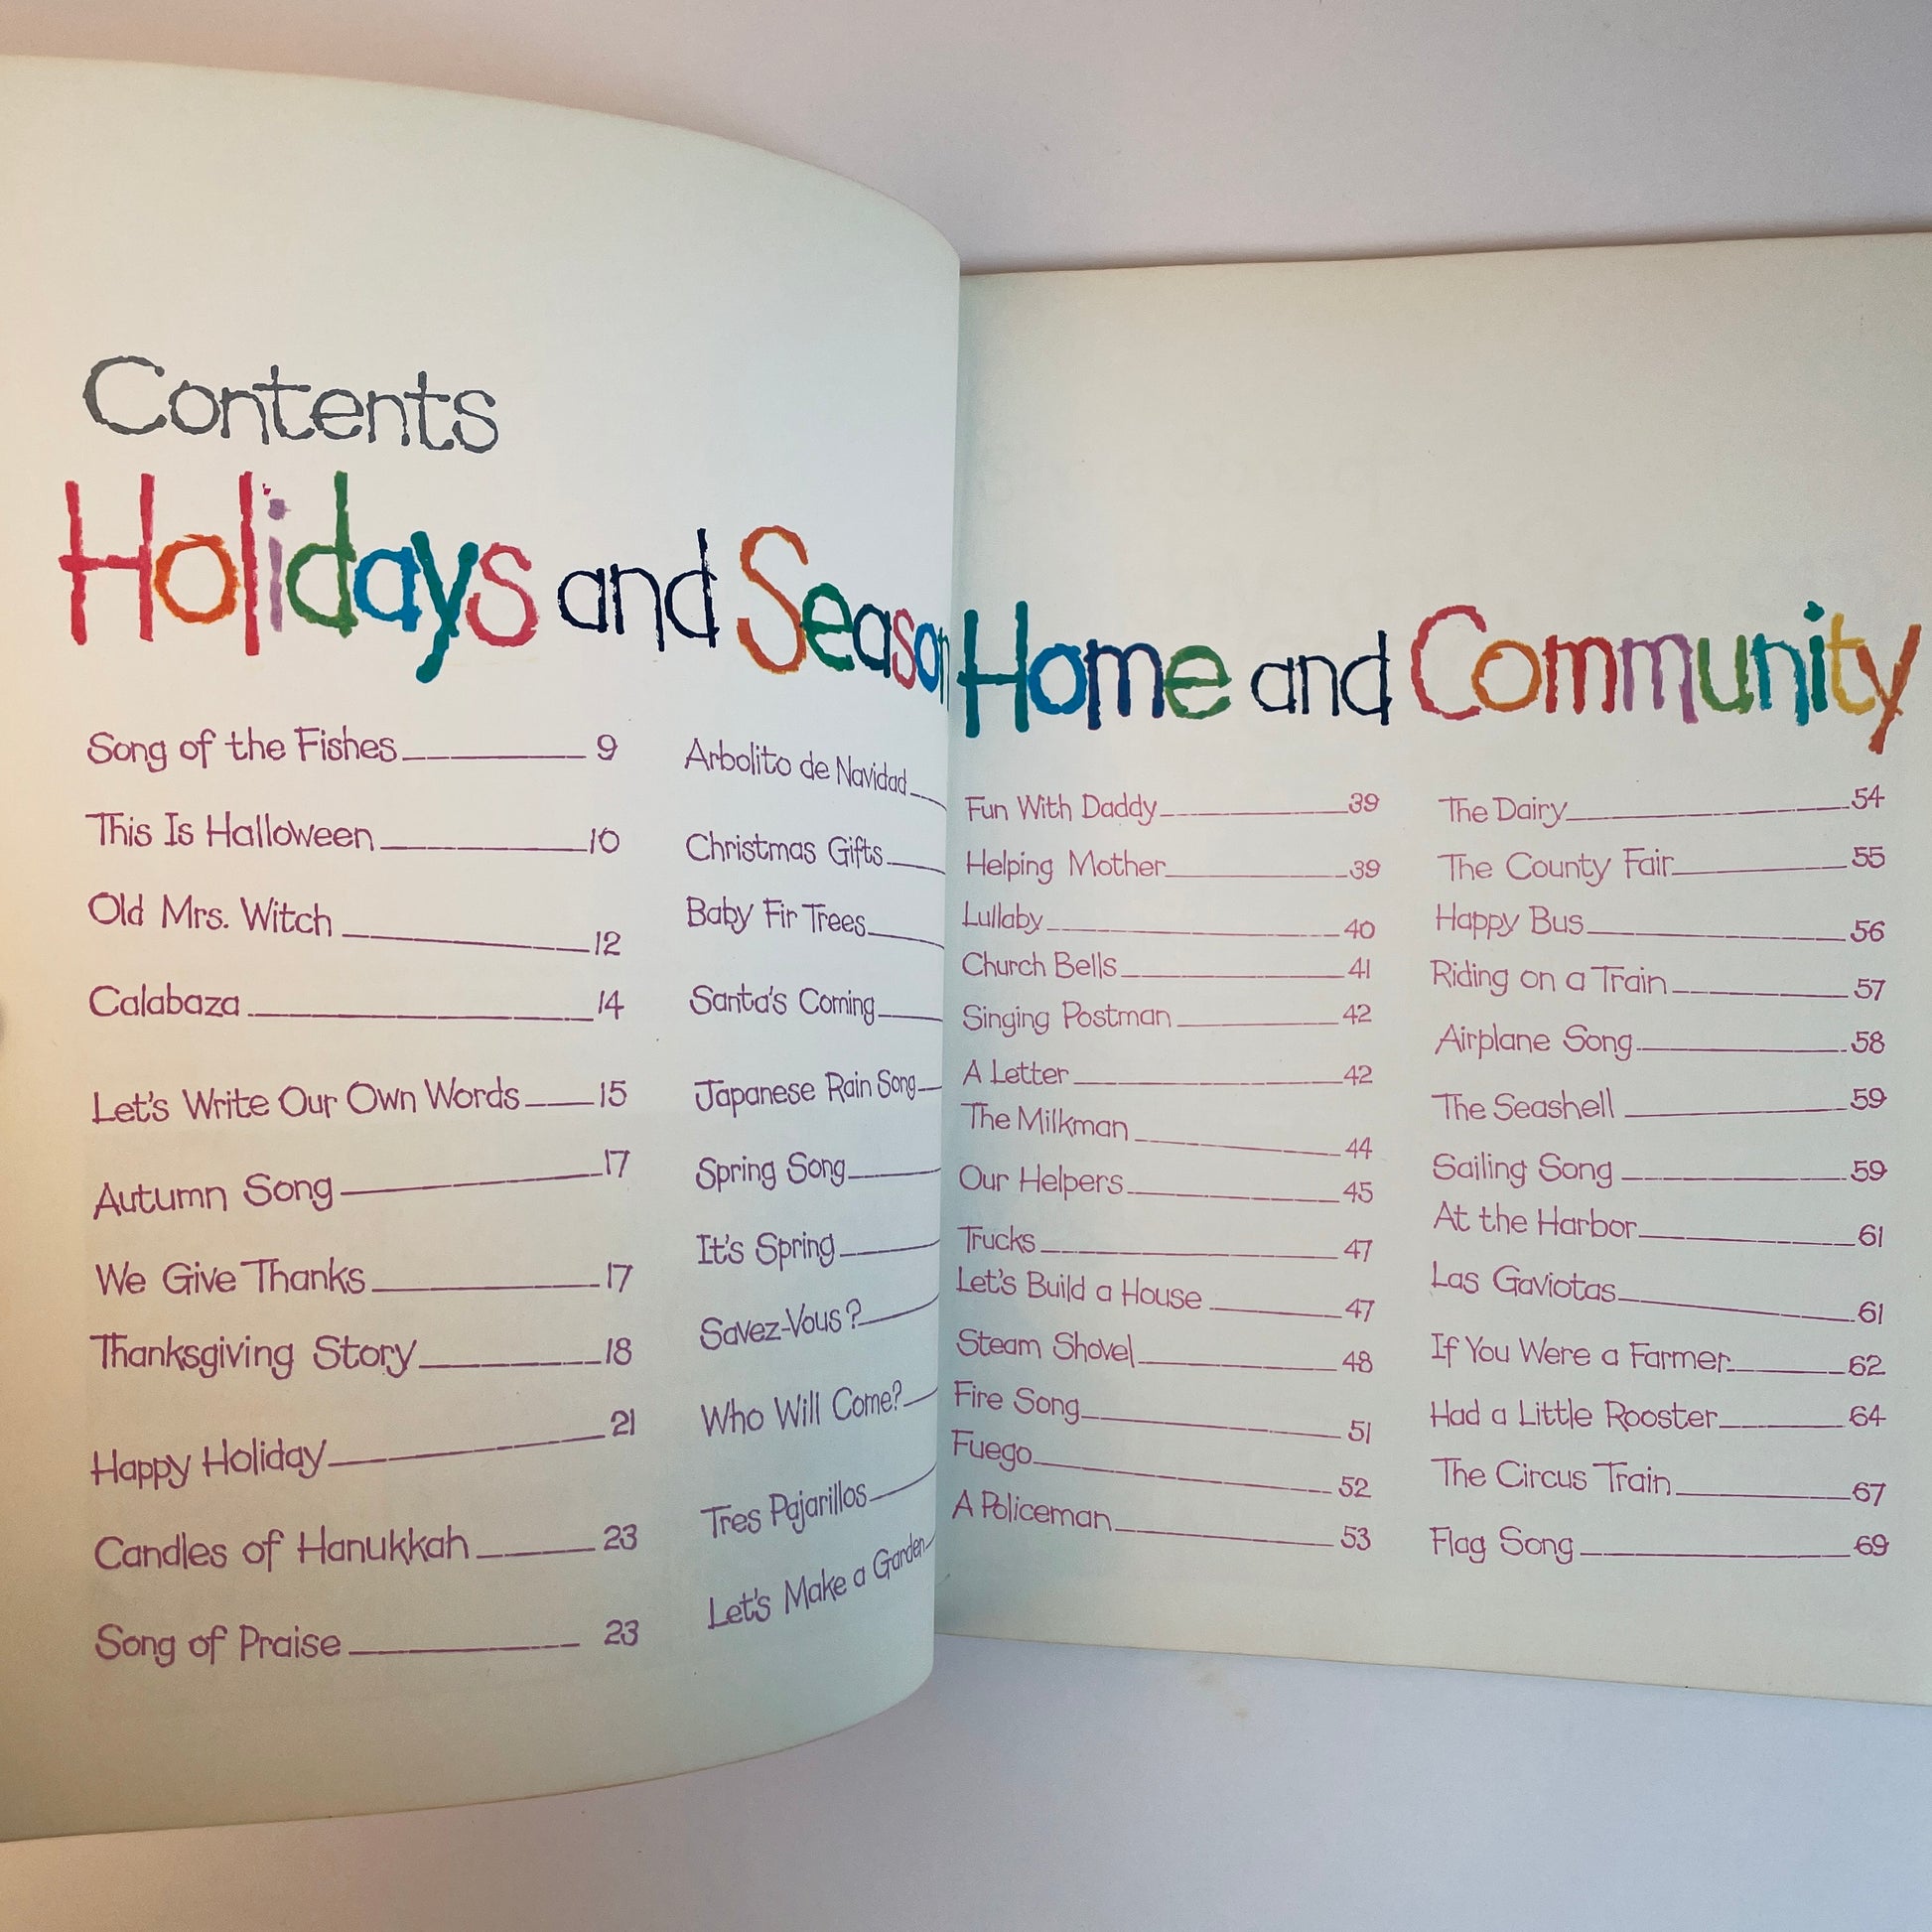 Contents
Holidays and Season
Song of the Fishes 9
This Is Halloween 10
Old Mrs. Witch 12
Calabaza 14
Let's Write Our Own Words 15
Autumn Song 17
We Give Thanks 17
Thanksgiving Story 18
Happy Holiday 21
Candles of Hanukkah 23
Song of Praise 23
Arbolito de Navidad
Christmas Gifts
Baby Fir Trees
Santa's Coming
Japanese Rain Song
Spring Song
It's Spring
Savez-Vous?
Who Will Come?
Tres Pajarillos
Let's Make a Garden
Home and Community
Fun With Daddy 39
Helping Mother 39
Lullaby 40
Church Bells 41
Singing Postman 42
A Letter 42
The Milkman 44
Our Helpers 45
Trucks 47
Let's Build a House 47
Steam Shovel 48
Fire Song 51
Fuego 52
A Policeman 53
The Dairy 54
The County Fair 55
Happy Bus 56
Riding on a Train 57
Airplane Song 58
The Seashell 59
Sailing Song 59
At the Harbor 61
Las Gaviotas 61
If You Were a Farmer 62
Had a Little Rooster 64
The Circus Train 67
Flag Song 69